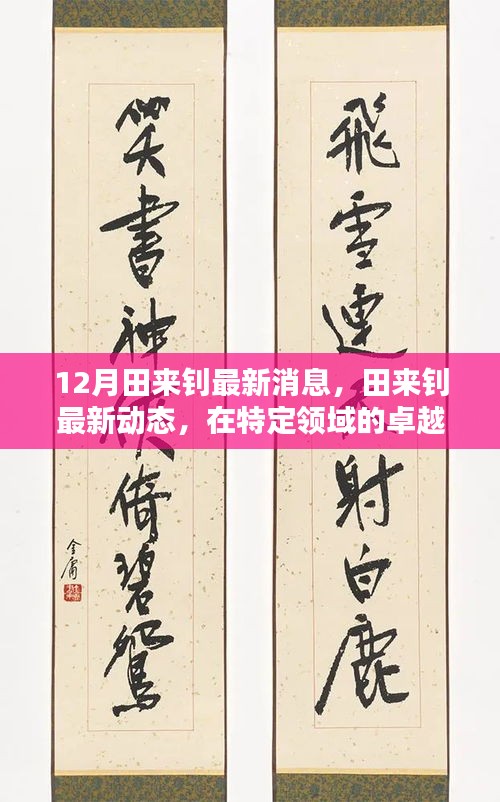 飛雪連天射白鹿
笑書神俠倚碧鴛
金庸
12月田来钊最新消息，田来钊
最新动态，在特定领域的卓越